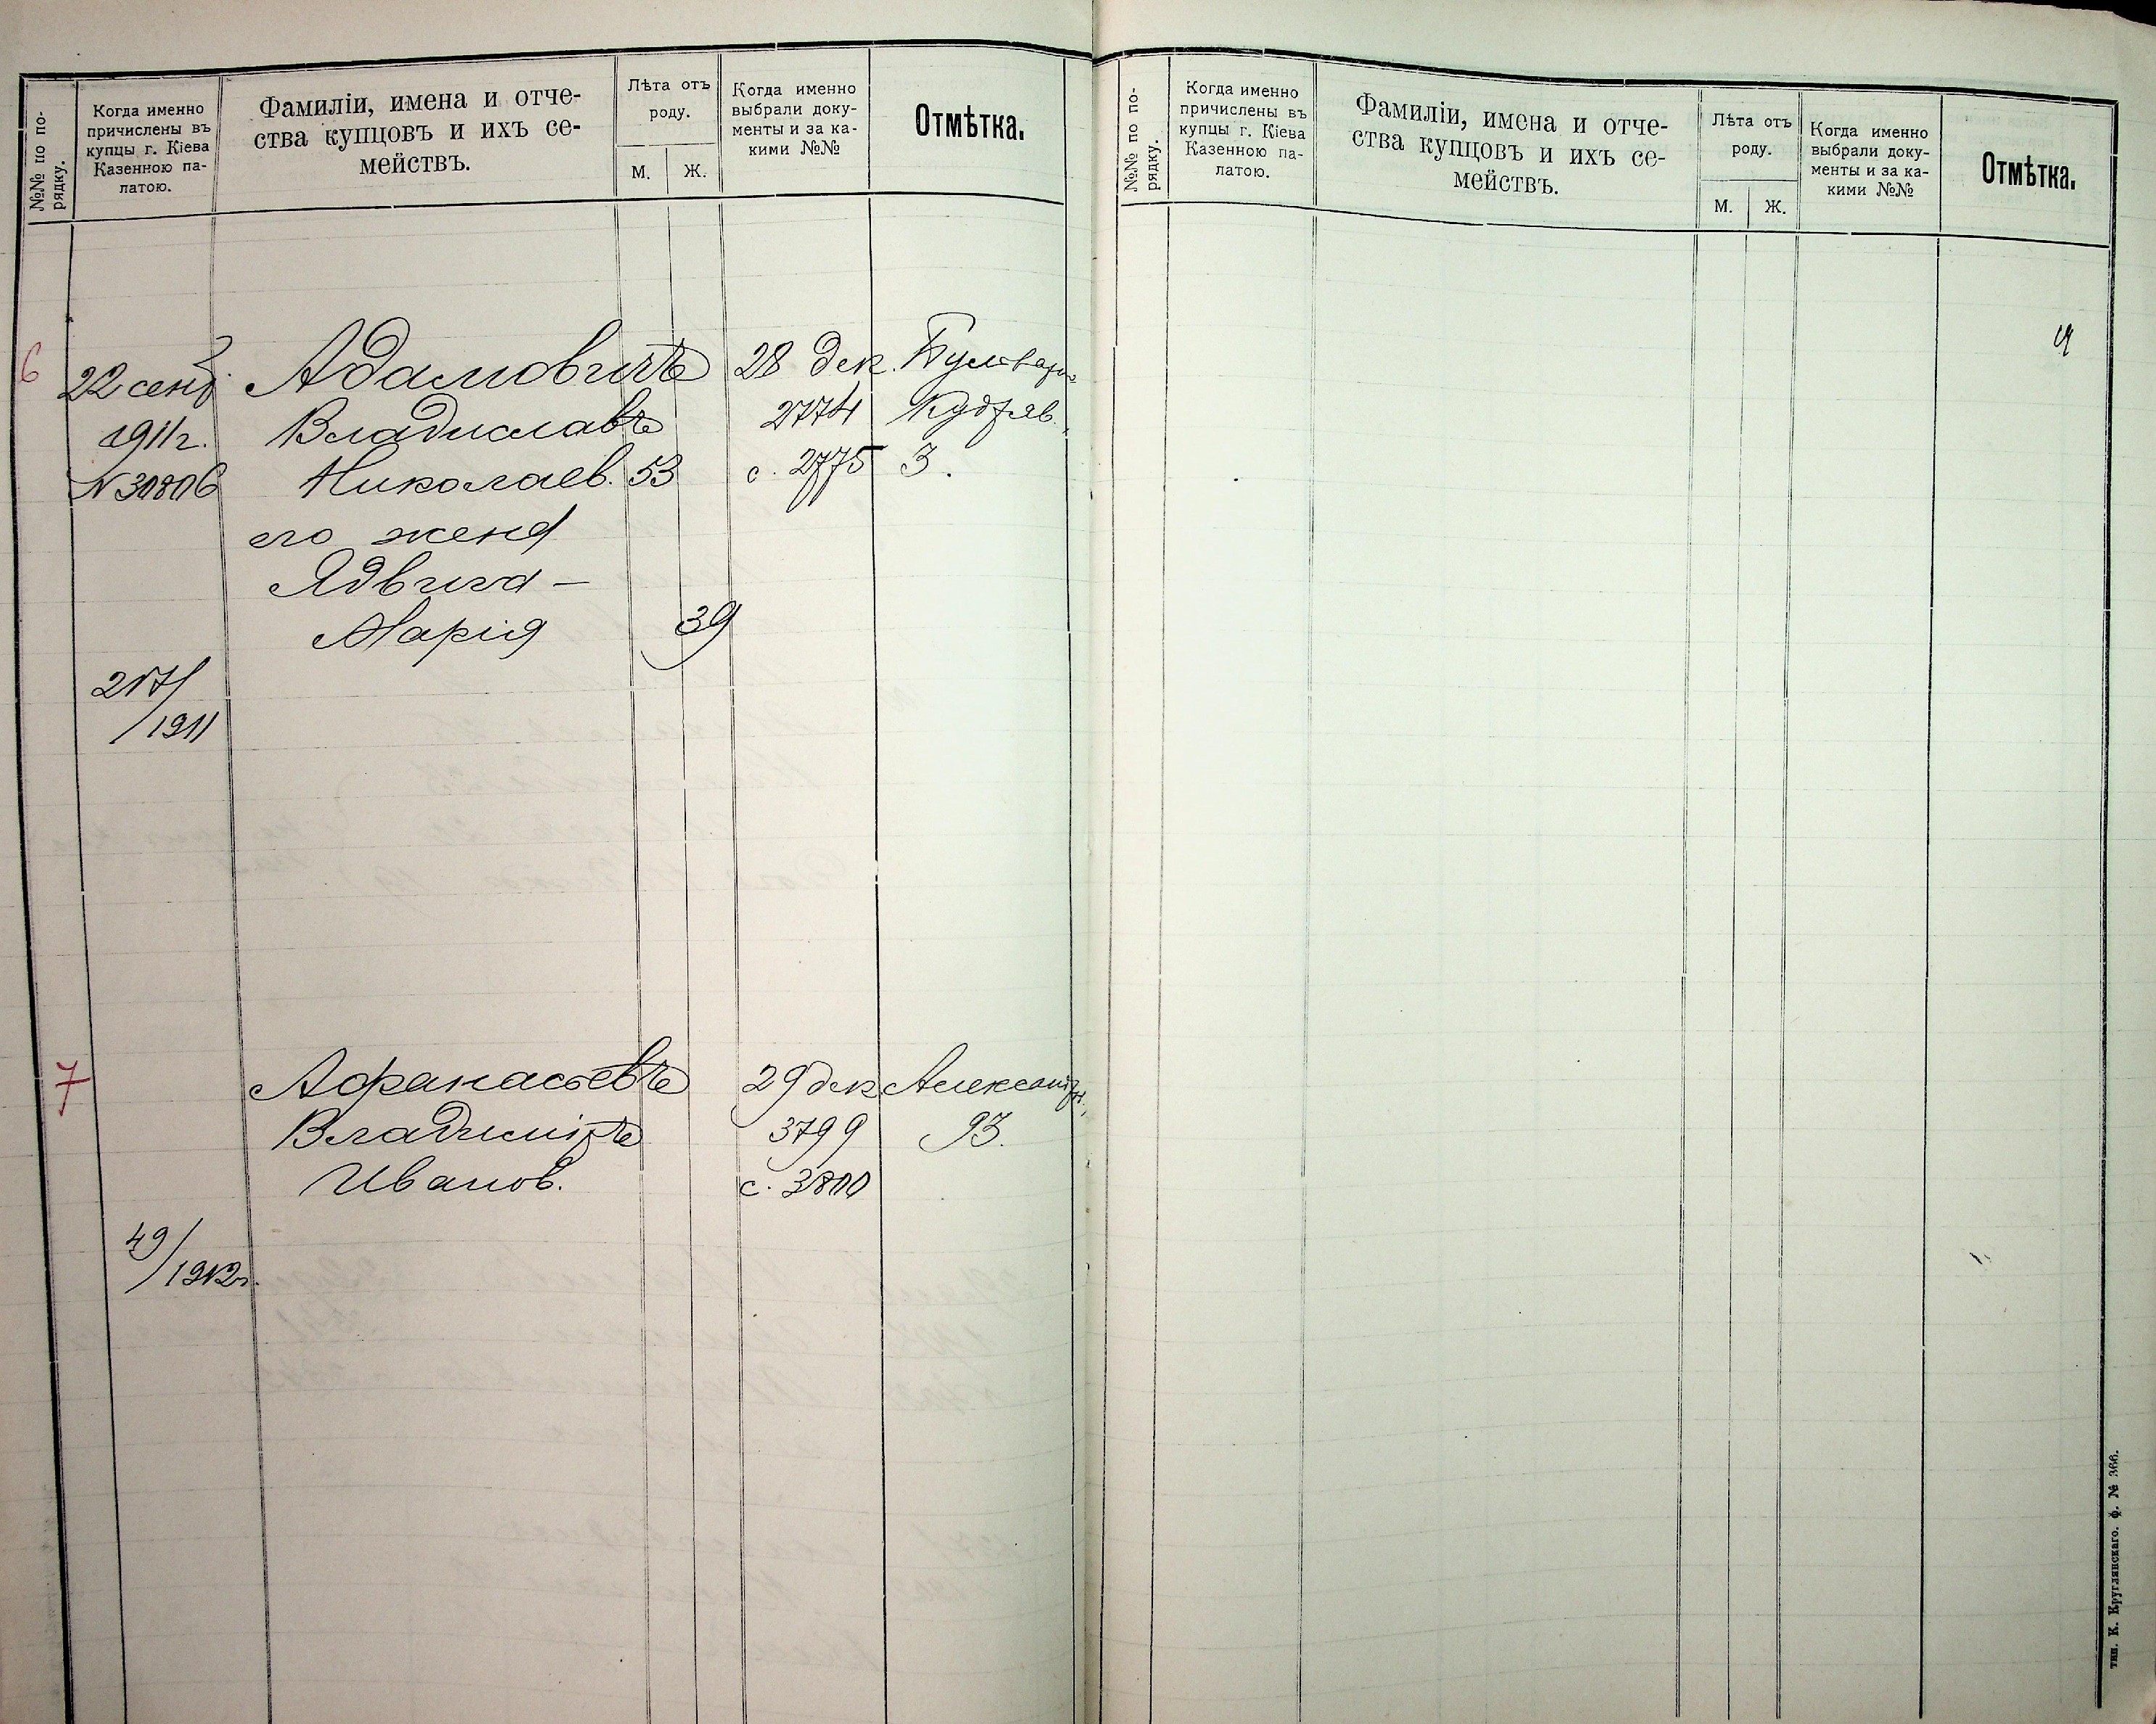 №№ по по-
рядку.
Когда именно
причислены въ
купцы г. Кіева
Казенною па-
латою.
Фамиліи, имена и отче-
ства купцовъ и ихъ се-
мействъ.
Лѣта отъ
роду.
М. Ж.
Когда именно
выбрали доку-
менты и за ка-
кими №№
Отмѣтка.
6
22 сент.
1911 г.
N 30806
Адамовичъ
Владиславъ
Николаев. 53
его жена
Ядвига –
Марія 39
28 дек.
2774
с. 2775
Кудряв.
3.
217/
/1911
7
Афанасьевъ
Владиміръ
Иванов.
29 дек
3799
с. 3800
Александр.
93.
49/
/1912 г.
№№ по по-
рядку.
Когда именно
причислены въ
купцы г. Кіева
Казенною па-
латою.
Фамиліи, имена и отче-
ства купцовъ и ихъ се-
мействъ.
Лѣта отъ
роду.
М. Ж.
Когда именно
выбрали доку-
менты и за ка-
кими №№
Отмѣтка.
тип. К. Круглянскаго. ф. № 366.